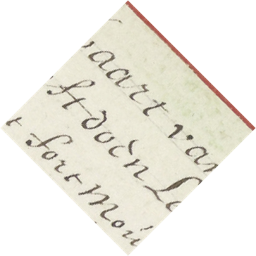 aart va
st doen La
t fort Moü